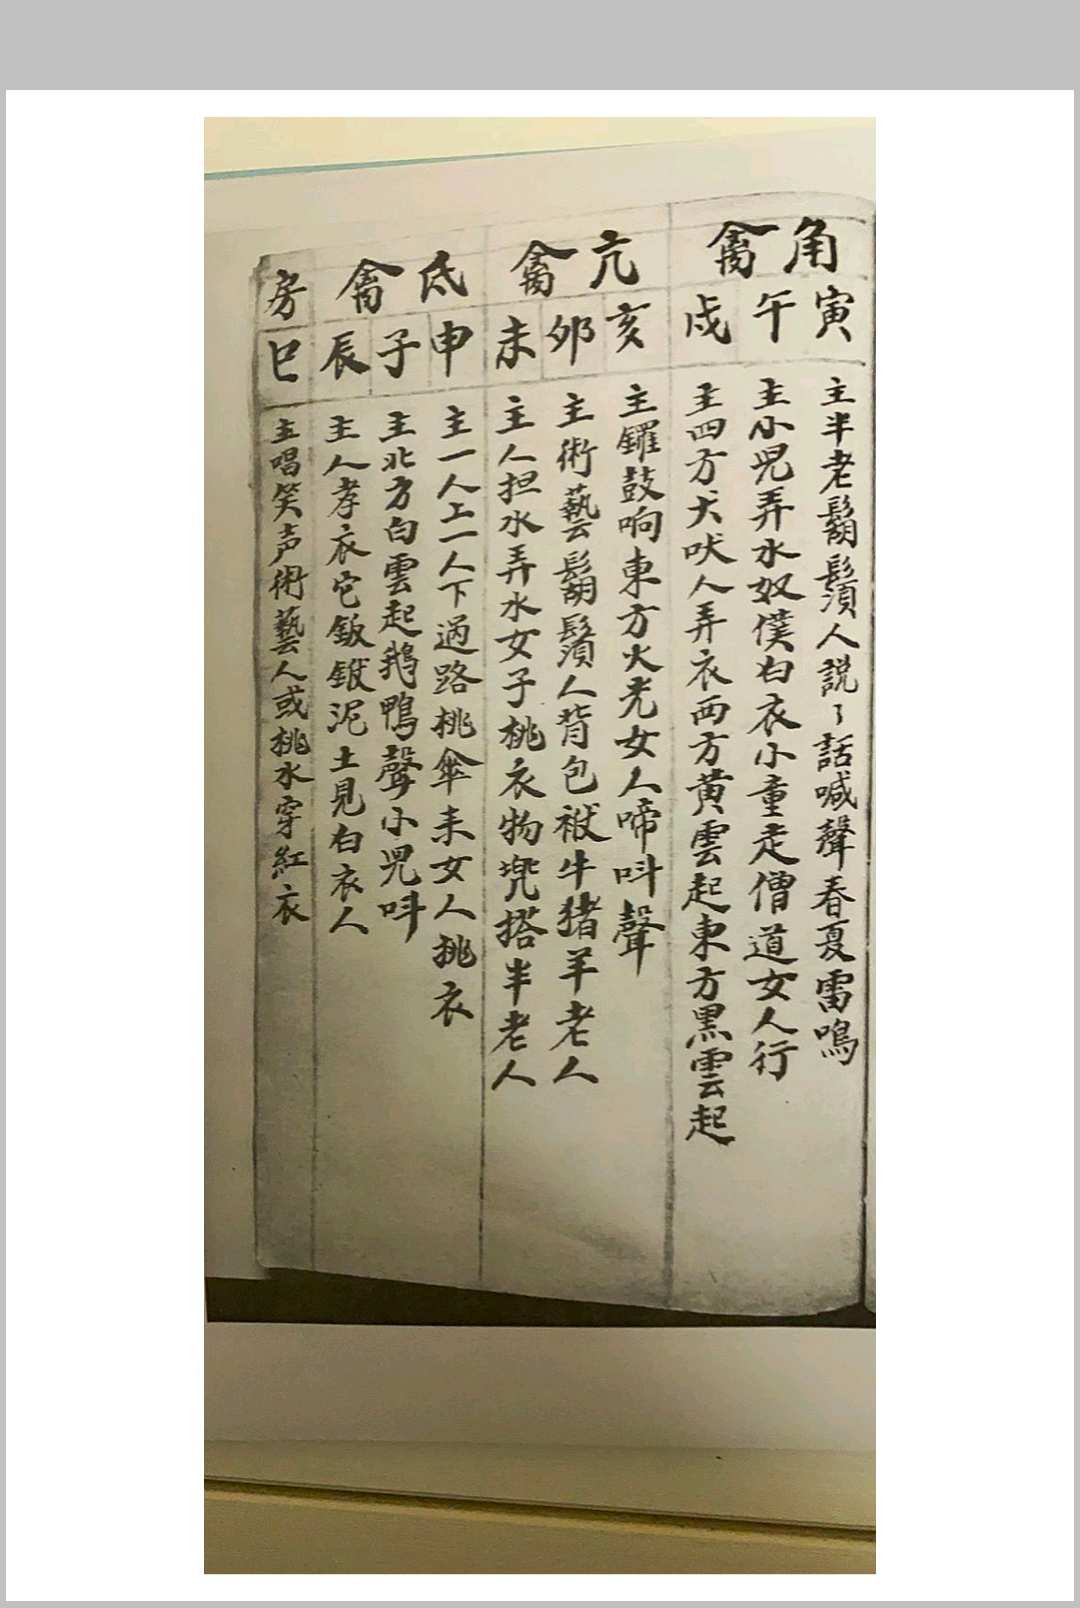 角禽
寅
主半老鬍鬚人説々話喊聲春夏雷鳴
午
主小兒弄水奴僕白衣小童走僧道女人行
戍
主四方犬吠人弄衣西方黄雲起東方黑雲起
亢禽
亥
主鑼鼓响東方火光女人啼呌聲
卯
主術藝鬍鬚人背包袱牛猪羊老人
未
主人担水弄水女子桃衣物兠搭半老人
氐禽
申
主一人上一人下過路桃傘来女人挑衣
子
主北方白雲起鵝鴨聲小兒呌
辰
主人孝衣它鈑鈸泥土見白衣人
房
巳
主唱笑声術藝人或桃水穿紅衣